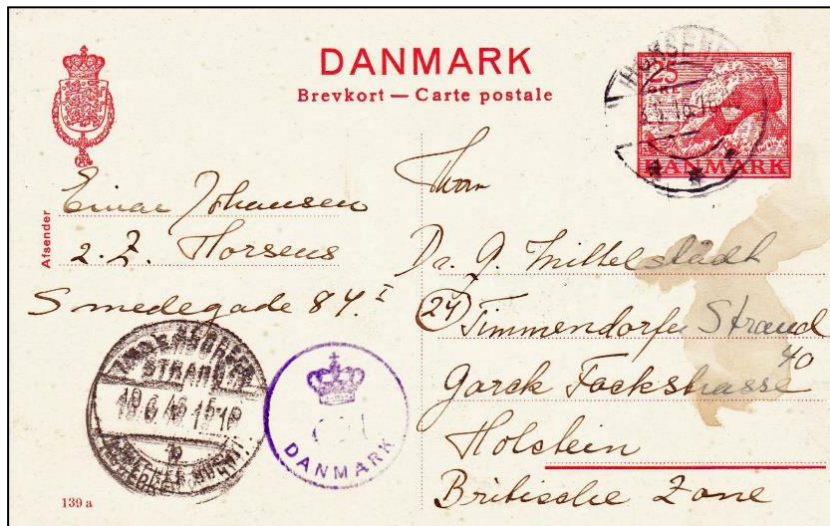 DANMARK
Brevkort — Carte postale
25
ØRE
DANMARK
Afsender
Einar Johansen
z. Z. Horsens
Smedegade 84. I
Herrn
Dr. G. Mittelstädt
24 Timmendorfer Strand
Gorck Fockstrasse 40
Holstein
Britische Zone
STRAND
DANMARK
139 a